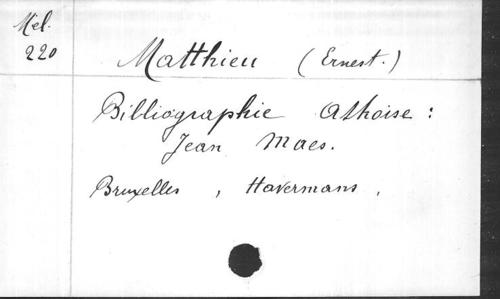 Mél.
220
Matthieu (Ernest.)
Bibliographie Athoise :
Jean Maes.
Bruxelles , Havermans ,